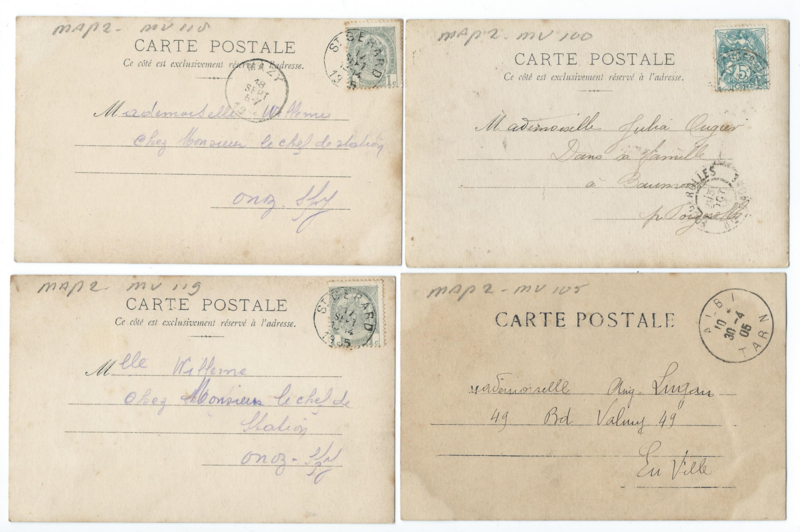 MAP2 - MV 115
CARTE POSTALE
Ce côté est exclusivement réservé à l'adresse.
ST GERARD
MAZY
Mademoiselle Willeme
chez Monsieur le chef de station
Onoz-Spy
MAP2 - MV 100
CARTE POSTALE
Ce côté est exclusivement réservé à l'adresse.
5
Mademoiselle Julia
Dans sa famille
à
MAP2 - MV 119
CARTE POSTALE
Ce côté est exclusivement réservé à l'adresse.
ST GERARD
Mlle Willeme
chez Monsieur le chef de
Station
Onoz-Spy
MAP2 - MV 105
CARTE POSTALE
ALBI
10
30-4
05
TARN
Mademoiselle Lugan
49 Bd Valmy 49
En Ville